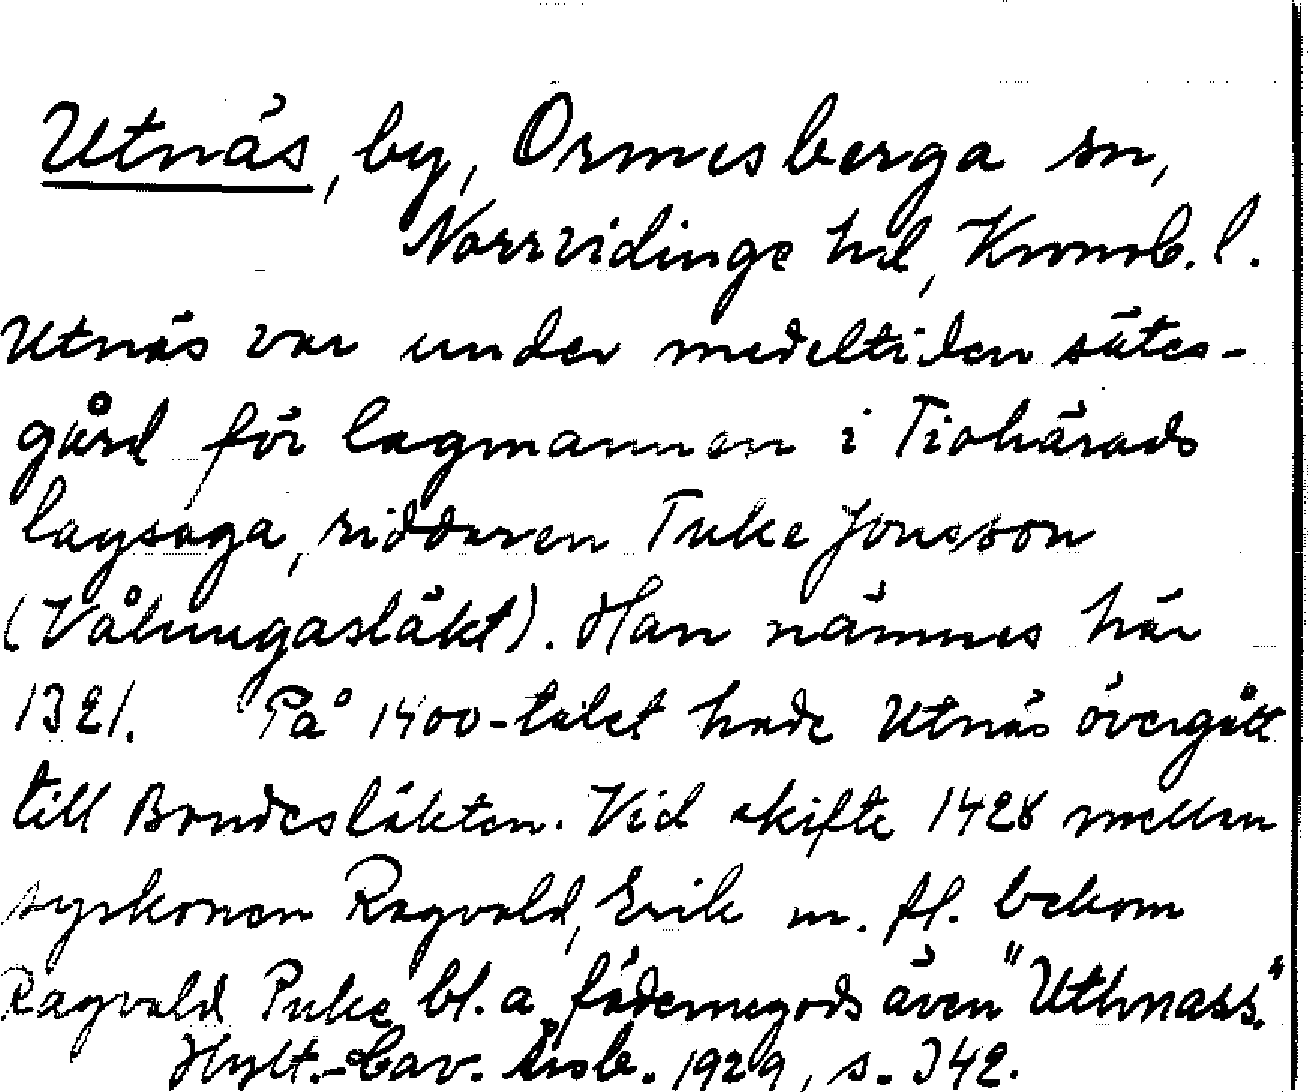 Utnäs, by, Ormesberga sn,
Norrvidinge hd, Kronob. l.
Utnäs var under medeltiden sätes-
gård för lagmannen i Tiohärads
lagsaga, riddaren Tuke Jonsson
(Vålungasläkt). Han nämnes här
1321. På 1400-talet hade Utnäs övergått
till Bondesläkten. Vid skifte 1428 mellan
syskonen Ragvald, Erik m. fl. bekom
Ragvald Puke bl. a fädernegods även "Uthnass."
Hylt.-Cav. Årsb. 1929, s. 342.